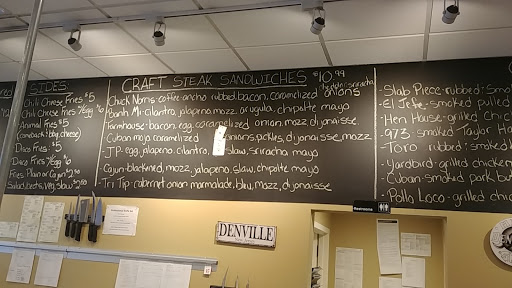 SIDES:
Chili Cheese Fries $5
Chili Cheese Fries w/egg $6
Animal Fries $5
Disco Fries $5
Disco Fries w/egg
Fries, Plain or Cajun $
Salad, Slaw
CRAFT STEAK SANDWICHES $10.99
Chuck Norris-coffee ancho rubbed, bacon, caramelized onions
Banh Mi-cilantro, jalapeno, mozz, arugula, chipotle mayo
Farmhouse-bacon, egg, caramelized onion, mozz, dijonaisse
Cuban mojo caramelized onions, pickles, dijonaisse, mozz
JP-egg, jalapeno, cilantro, slaw, sriracha mayo
Cajun-blackened, mozz, jalapeno, slaw, chipotle mayo
Tri Tip-cabernet onion marmalade, bleu, mozz, dijonaisse
-Slab Piece-rubbed
-El Jefe-smoked pulled
-Hen House-grilled chic
-973 smoked Taylor H
-Toro rubbed smok
-Yardbird-grilled chicken
-Cuban-smoked pork but
-Pollo Loco-grilled chic
Restrooms
DENVILLE